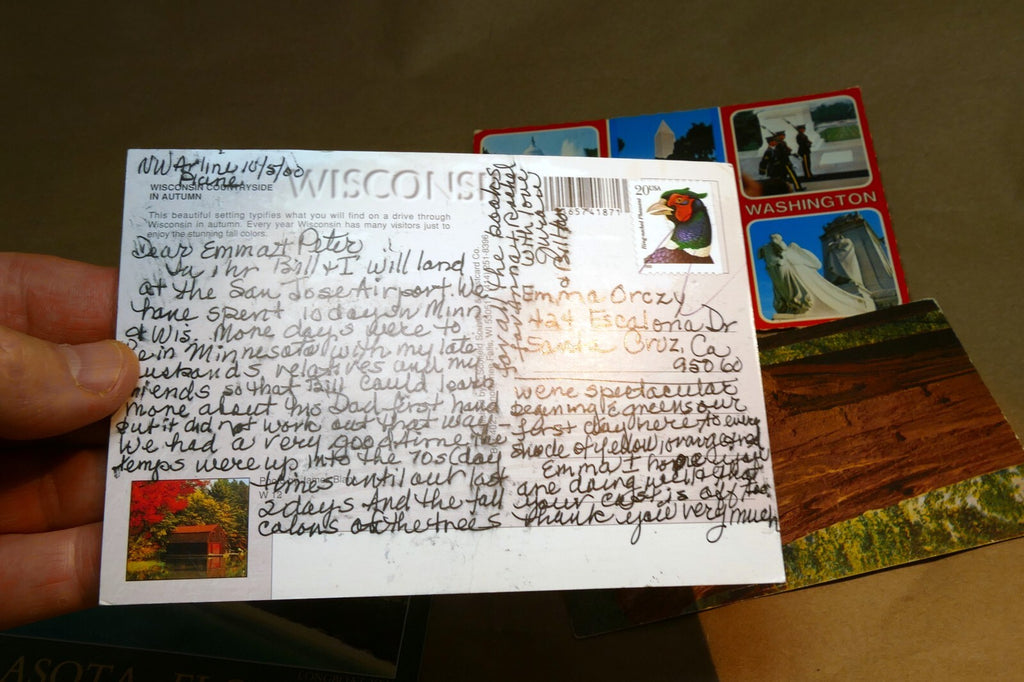 NW Airline 10/5/00
Plane
WISCONSIN COUNTRYSIDE
IN AUTUMN
WISCONSIN
This beautiful setting typifies what you will find on a drive through
Wisconsin in autumn. Every year Wisconsin has many visitors just to
enjoy the stunning fall colors.
Dear Emma + Peter
Bill + I will land
at the San Jose Airport. We
have spent 10 days in Minn
& Wis. More days were to
be in Minnesota with my late
husbands relatives and my
friends so that Bill could learn
more about his Dad first hand
but it did not work out that way -
We had a very good time. The
temps were up into the 70s (day
times until our last
2 days And the fall
colors on the trees
were spectacular
begining @ greens our
first day here to every
shade of yellow, orange, red
Emma I hope you
are doing well & that
your cast is off, too
Thank you very much
for all the
with love
65741871
20
USA
Ring-necked Pheasant
Emma Orczy
424 Escalona Dr
Santa Cruz, Ca
95060
WASHINGTON
ASOTA